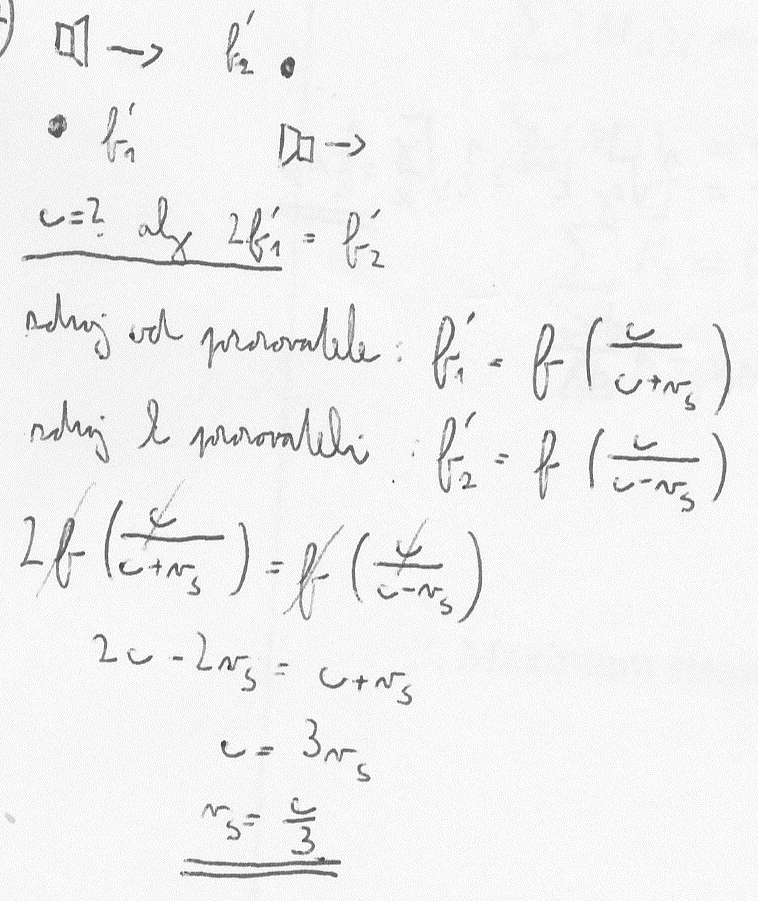 → f₂′ •
• f₁′ →
c=? aby 2f₁′ = f₂′
zdroj od pozorovatele: f₁′ = f (c/(c+v_s))
zdroj k pozorovateli: f₂′ = f (c/(c-v_s))
2f (c/(c+v_s)) = f (c/(c-v_s))
2c - 2v_s = c+v_s
c = 3v_s
v_s = c/3